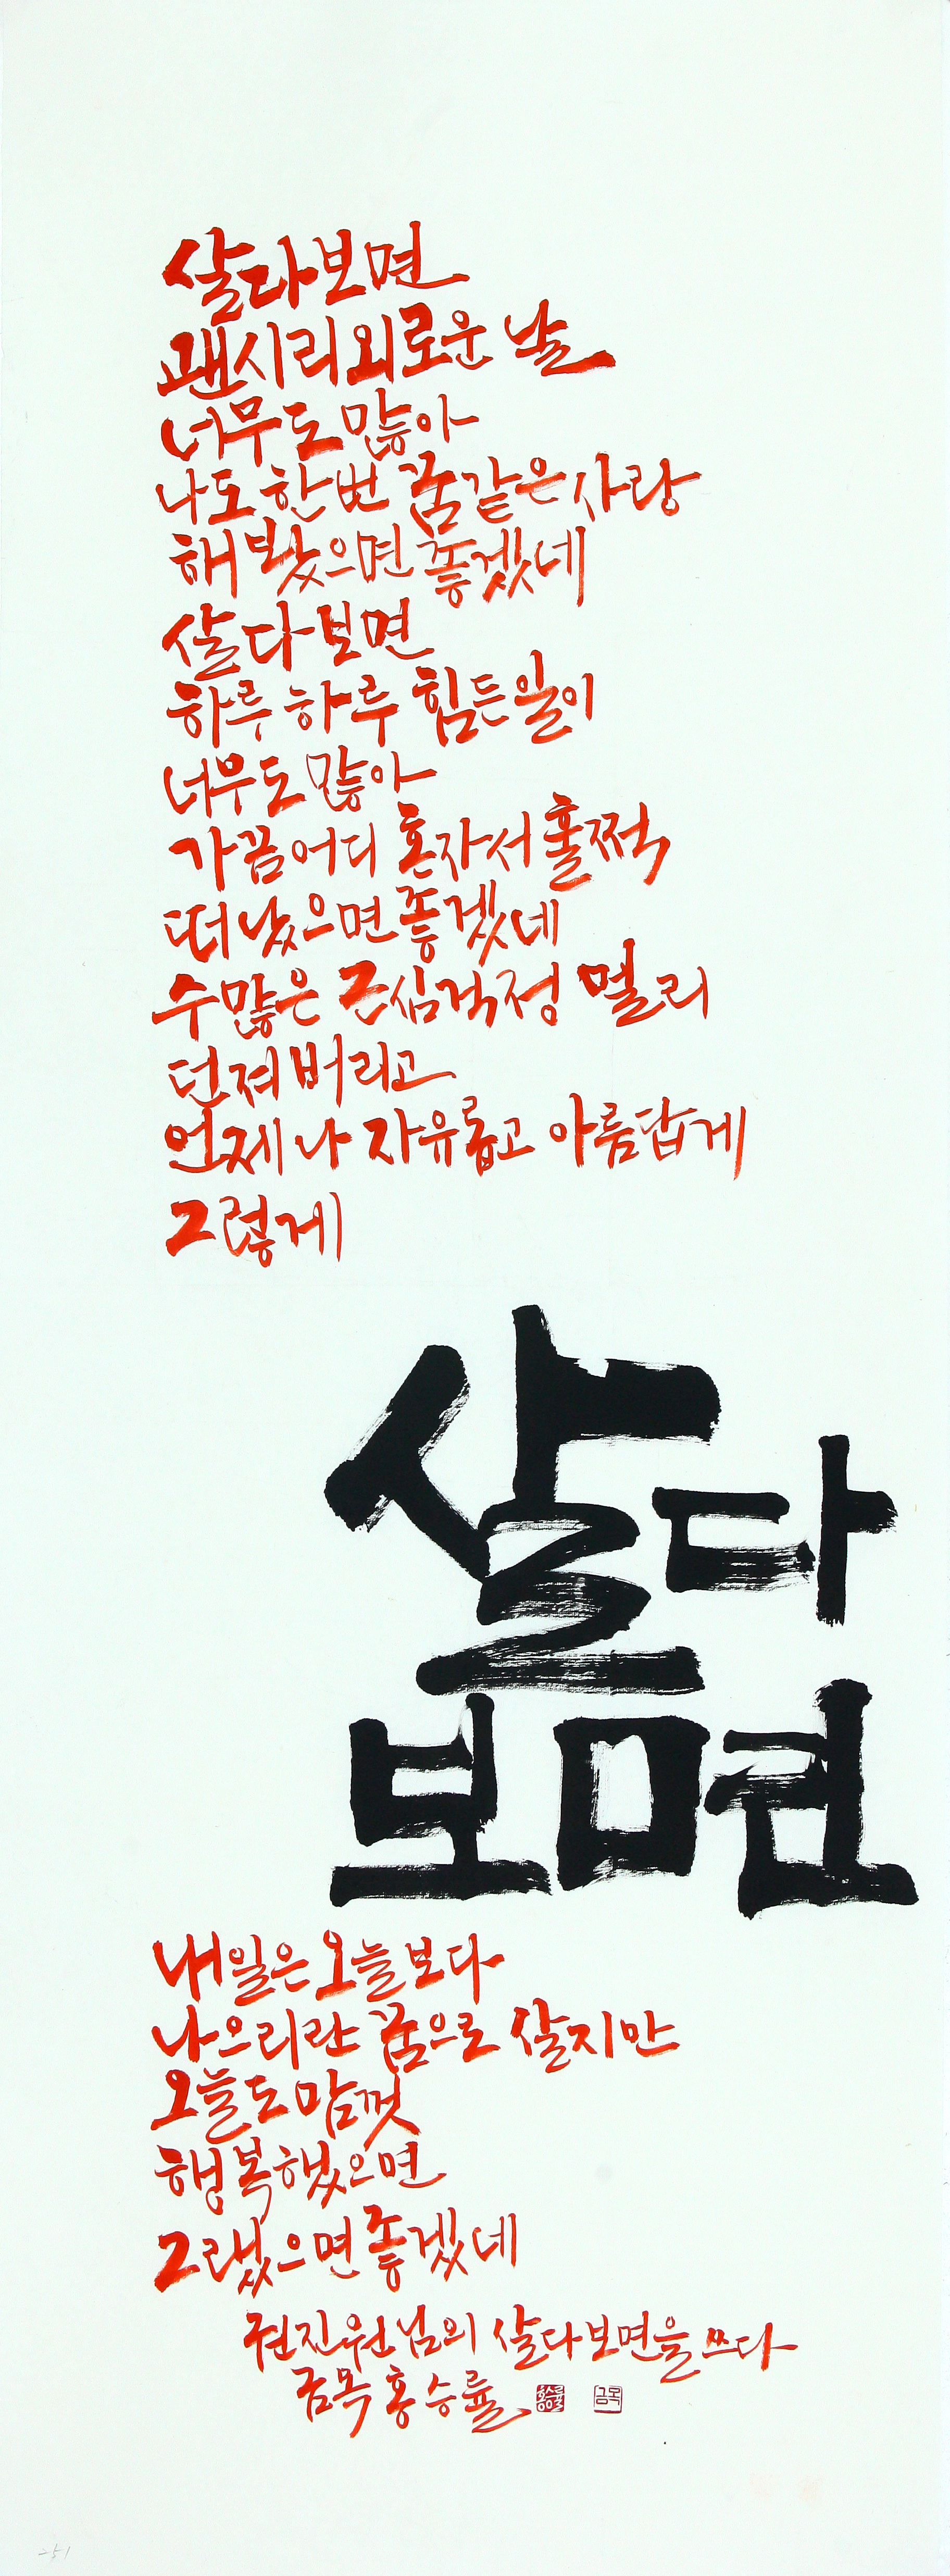 살다보면
괜시리 외로운 날
너무도 많아
나도 한번 꿈같은 사랑
해봤으면 좋겠네
살다보면
하루 하루 힘든 일이
너무도 많아
가끔 어디 혼자서 훌쩍
떠났으면 좋겠네
수많은 근심걱정 멀리
던져버리고
언제나 자유롭고 아름답게
그렇게
살다
보면
내일은 오늘보다
나으리란 꿈으로 살지만
오늘도 맘껏
행복했으면
그랬으면 좋겠네
권진원님의 살다보면을 쓰다
금목 홍승률
홍승률 금목
251